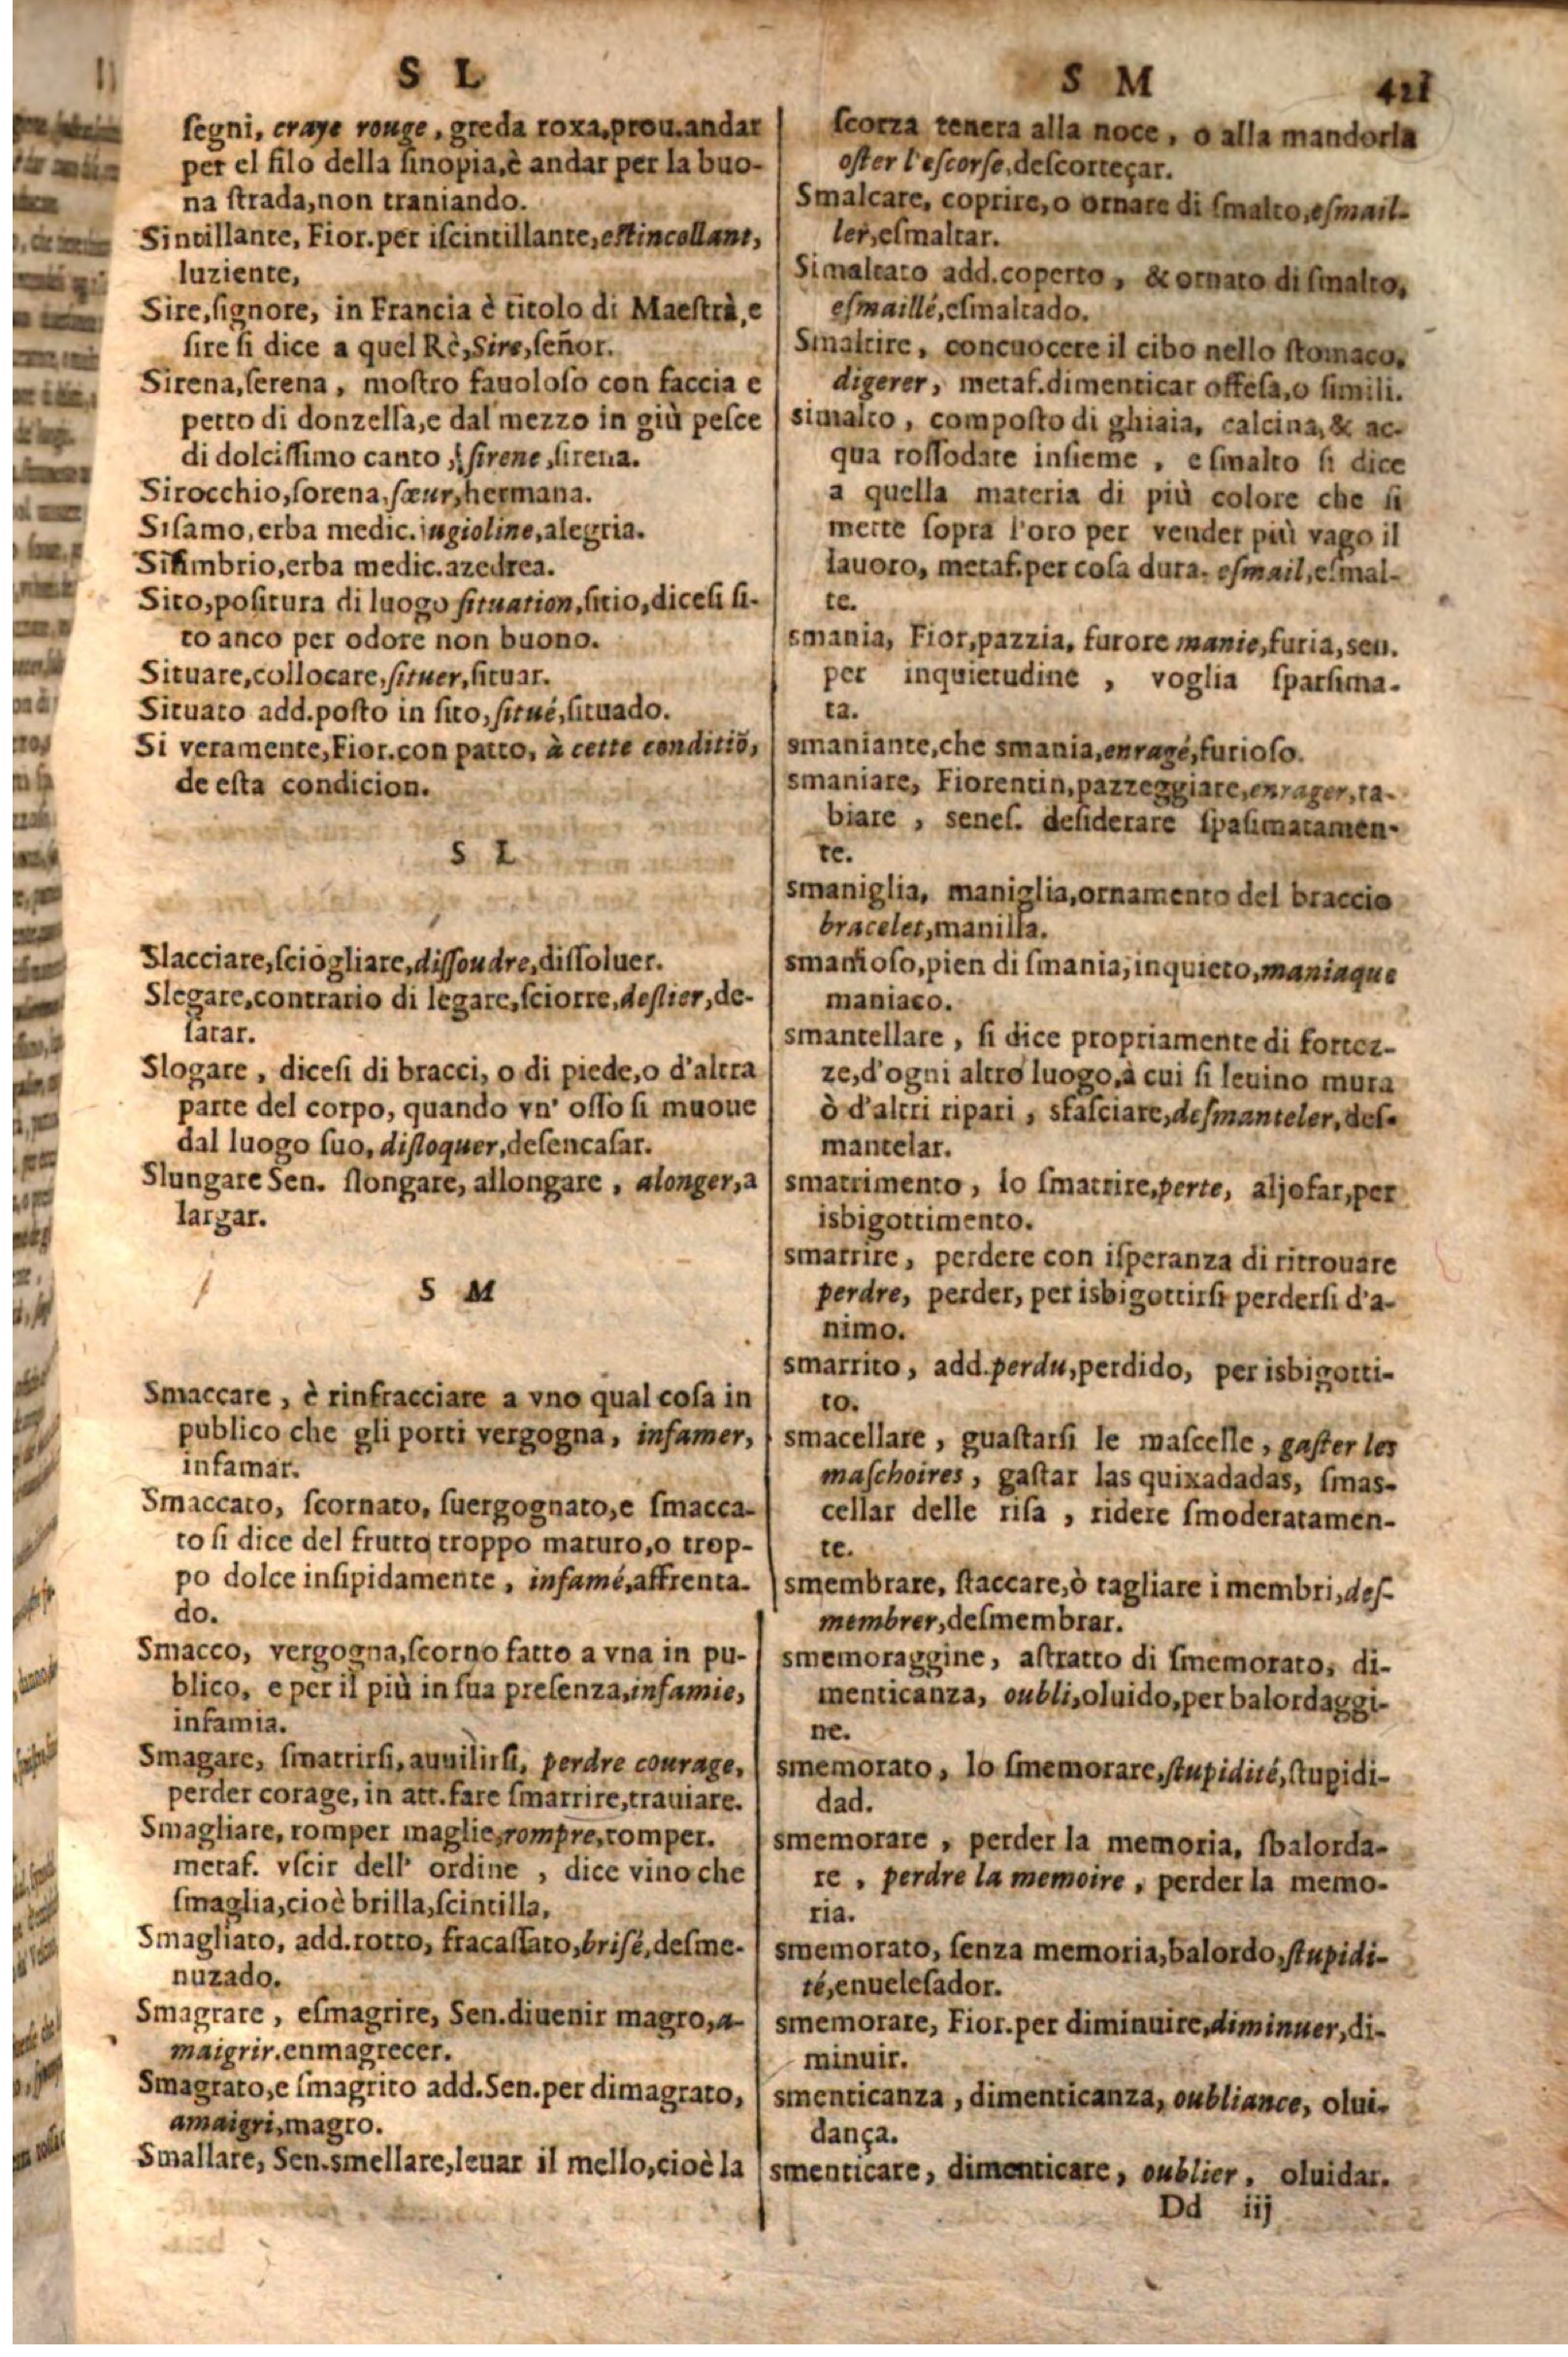 S L
ſegni, craye rouge, greda roxa, prou. andar
per el filo della ſinopia, è andar per la buo-
na ſtrada, non traniando.
Sintillante, Fior. per iſcintillante, eſtincellant,
luziente,
Sire, ſignore, in Francia è titolo di Maeſtrà, e
ſire ſi dice a quel Rè, Sire, ſeñor.
Sirena, ſerena, moſtro fauoloſo con faccia e
petto di donzella, e dal mezzo in giù peſce
di dolciſſimo canto, ſirene, ſirena.
Sirocchio, ſorena, ſœur, hermana.
Siſamo, erba medic. iugioline, alegria.
Siſimbrio, erba medic. azedrea.
Sito, poſitura di luogo ſituation, ſitio, diceſi ſi-
to anco per odore non buono.
Situare, collocare, ſituer, ſituar.
Situato add. poſto in ſito, ſitué, ſituado.
Si veramente, Fior. con patto, à cette conditiõ,
de eſta condicion.
S L
Slacciare, ſciogliare, diſſoudre, diſſoluer.
Slegare, contrario di legare, ſciorre, deſlier, de-
ſatar.
Slogare, diceſi di bracci, o di piede, o d'altra
parte del corpo, quando vn' oſſo ſi muoue
dal luogo ſuo, diſloquer, deſencaſar.
Slungare Sen. ſlongare, allongare, alonger, a
largar.
S M
Smaccare, è rinfracciare a vno qual coſa in
publico che gli porti vergogna, infamer,
infamar.
Smaccato, ſcornato, ſuergognato, e ſmacca-
to ſi dice del frutto troppo maturo, o trop-
po dolce inſipidamente, infamé, affrenta-
do.
Smacco, vergogna, ſcorno fatto a vna in pu-
blico, e per il più in ſua preſenza, infamie,
infamia.
Smagare, ſmatrirſi, auuilirſi, perdre courage,
perder corage, in att. fare ſmarrire, trauiare.
Smagliare, romper maglie, rompre, romper.
metaf. vſcir dell' ordine, dice vino che
ſmaglia, cioè brilla, ſcintilla,
Smagliato, add. rotto, fracaſſato, briſé, deſme-
nuzado.
Smagrare, eſmagrire, Sen. diuenir magro, a-
maigrir. enmagrecer.
Smagrato, e ſmagrito add. Sen. per dimagrato,
amaigri, magro.
Smallare, Sen. smellare, leuar il mello, cioè la
S M 421
ſcorza tenera alla noce, o alla mandorla
oſter l'eſcorſe, deſcorteçar.
Smalcare, coprire, o ornare di ſmalto, eſmail-
ler, eſmaltar.
Simaltato add. coperto, & ornato di ſmalto,
eſmaillé, eſmaltado.
Smaltire, concuocere il cibo nello ſtomaco,
digerer, metaf. dimenticar offeſa, o ſimili.
simalto, compoſto di ghiaia, calcina, & ac-
qua roſſodate inſieme, e ſmalto ſi dice
a quella materia di più colore che ſi
mette ſopra l'oro per vender più vago il
lauoro, metaf. per coſa dura. eſmail, eſmal-
te.
smania, Fior, pazzia, furore manie, furia, sen.
per inquietudine, voglia ſparſima-
ta.
smaniante, che smania, enragé, furioſo.
smaniare, Fiorentin. pazzeggiare, enrager, ra-
biare, seneſ. deſiderare ſpaſimatamen-
te.
smaniglia, maniglia, ornamento del braccio
bracelet, manilla.
smanioſo, pien di ſmania, inquieto, maniaque
maniaco.
smantellare, ſi dice propriamente di fortez-
ze, d'ogni altro luogo, a cui ſi leuino mura
ò d'altri ripari, sfaſciare, deſmanteler, deſ-
mantelar.
smatrimento, lo ſmatrire, perte, aljofar, per
isbigottimento.
smarrire, perdere con iſperanza di ritrouare
perdre, perder, per isbigottirſi perderſi d'a-
nimo.
smarrito, add. perdu, perdido, per isbigotti-
to.
smacellare, guaſtarſi le maſcelle, gaſter les
maſchoires, gaſtar las quixadadas, ſmas-
cellar delle riſa, ridere ſmoderatamen-
te.
smembrare, ſtaccare, ò tagliare i membri, deſ-
membrer, deſmembrar.
smemoraggine, aſtratto di ſmemorato, di-
menticanza, oubli, oluido, per balordaggi-
ne.
smemorato, lo ſmemorare, ſtupidité, ſtupidi-
dad.
smemorare, perder la memoria, ſbalorda-
re, perdre la memoire, perder la memo-
ria.
smemorato, ſenza memoria, balordo, ſtupidi-
té, enueleſador.
smemorare, Fior. per diminuire, diminuer, di-
minuir.
smenticanza, dimenticanza, oubliance, olui-
dança.
smenticare, dimenticare, oublier, oluidar.
Dd iij